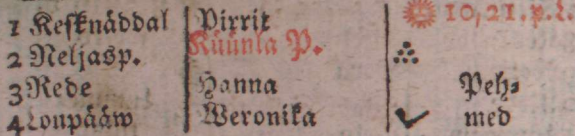 1 Keſknäddal Pirrit 10, 21. p. l.
2 Neljasp. Küünla P.
3 Rede Hanna Peh⸗
4 Loupääw Weronika med